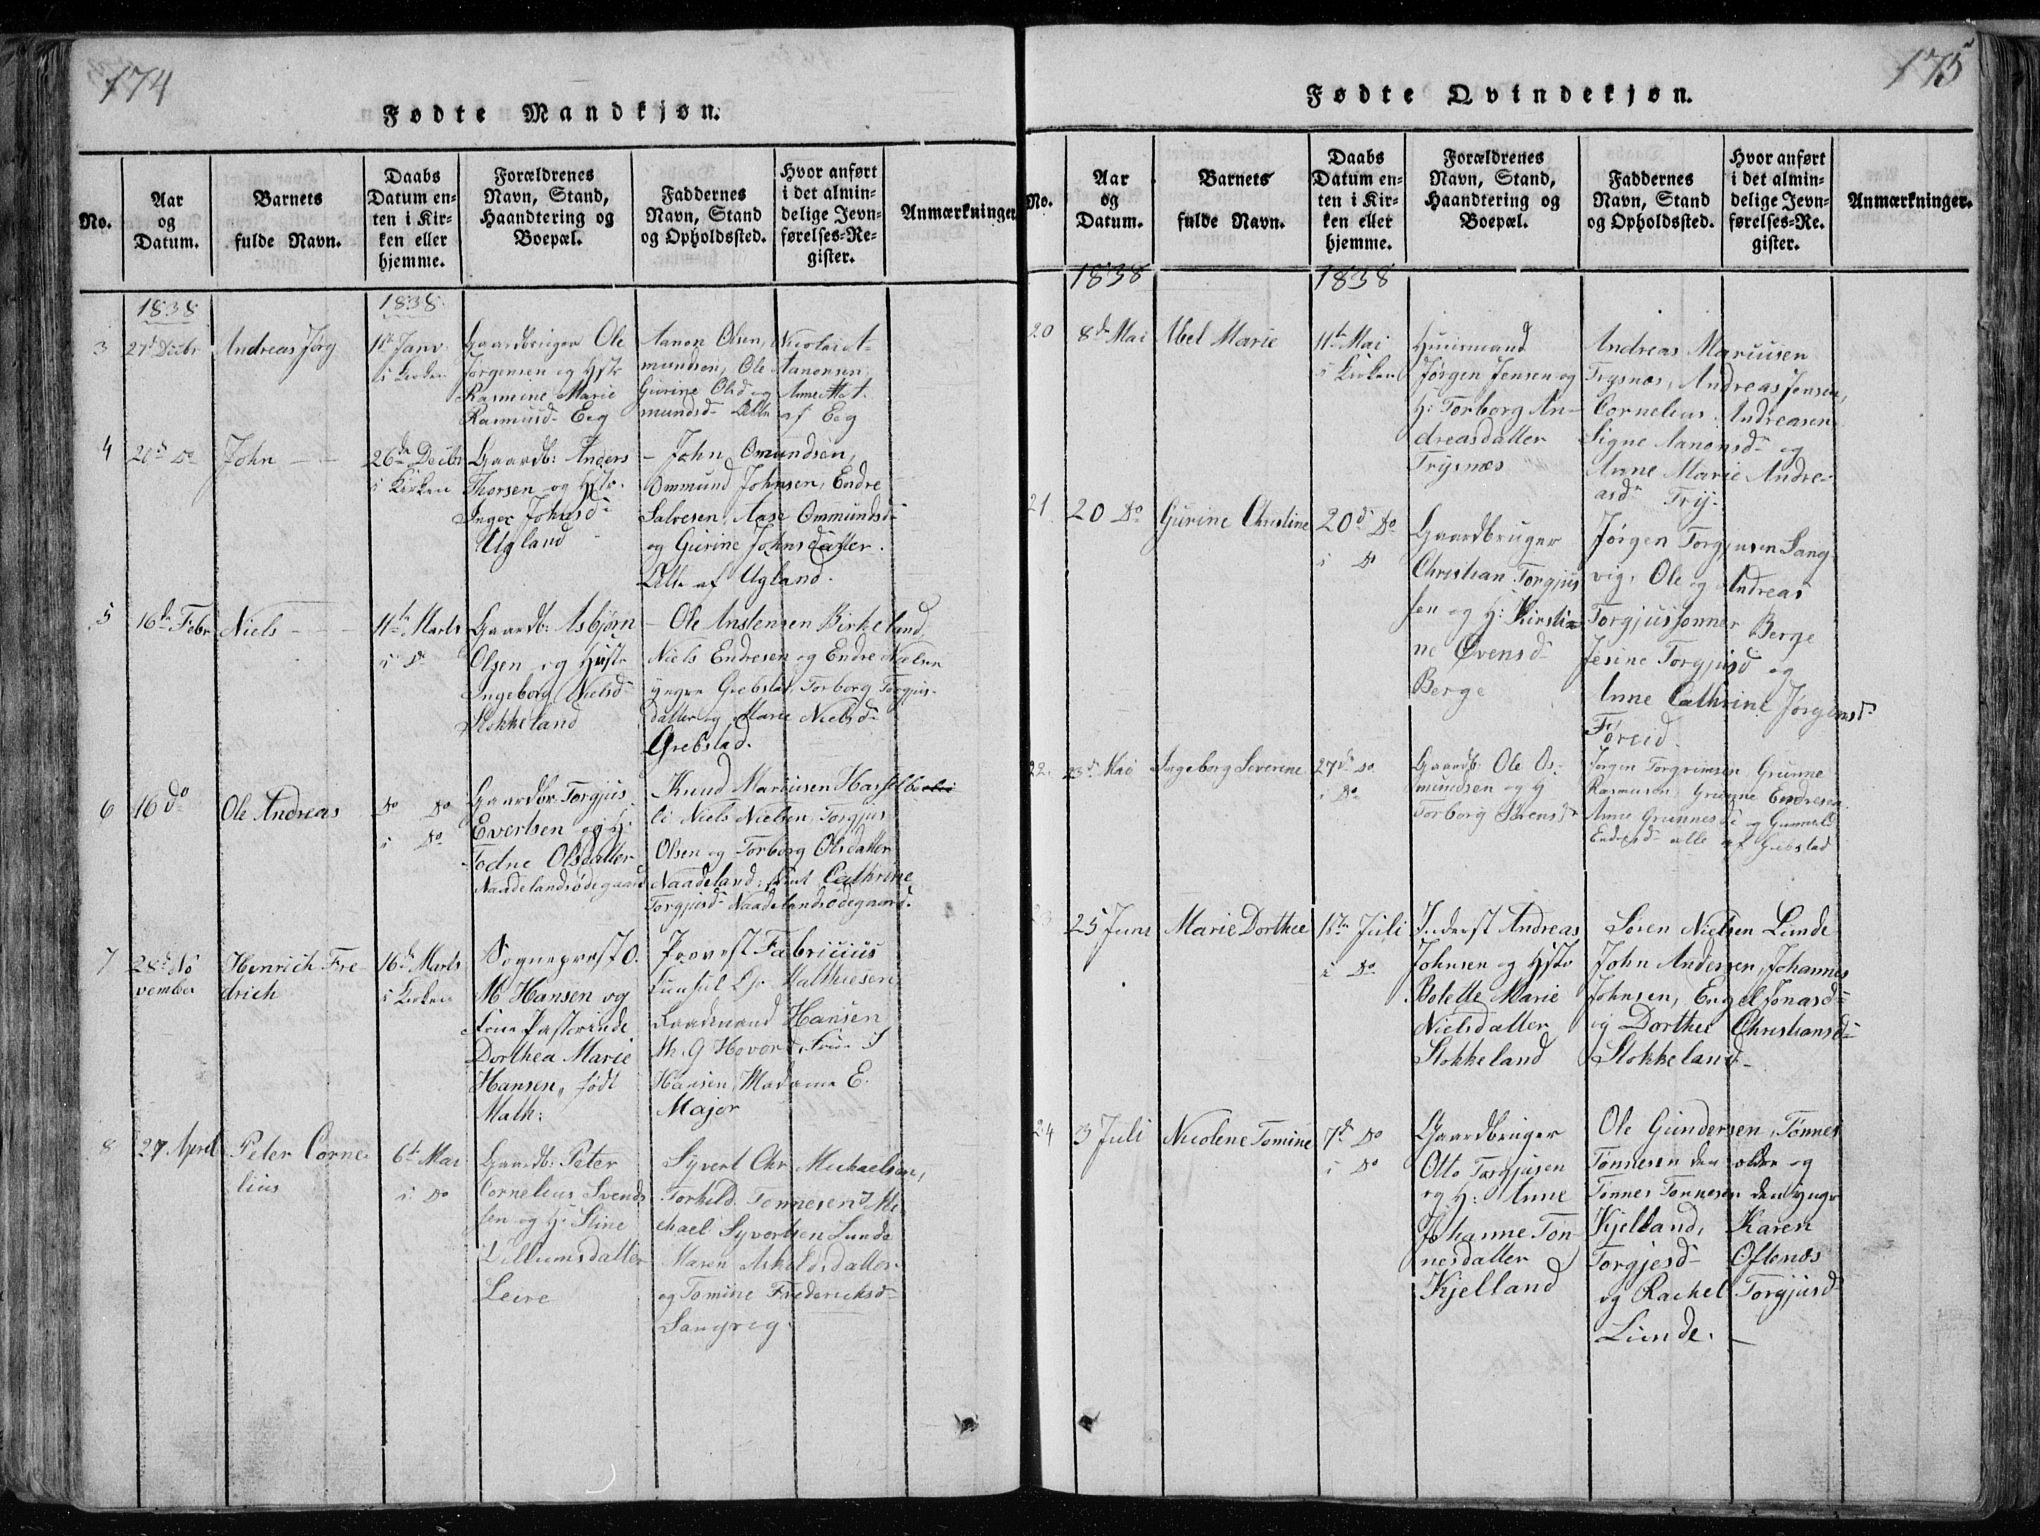 174
Fødte Mandkjøn.
No.
Aar
og
Datum.
Barnets
fulde Navn.
Daabs
Datum en-
ten i Kir-
ken eller
hjemme.
Forældrenes
Navn, Stand,
Haandtering og
Boepæl.
Faddernes
Navn, Stand
og Opholdssted.
Hvor anført
i det almin-
delige Jevn-
førelses-Re-
gister.
Anmærkninger.
1838
1838.
3
27d Decbr
Andreas Jørg
11te Janv
i Kirken
Gaardbruger Ole
Jørgensen og Hstr
Rasmine Marie
Rasmusd Eeg
Aanon Olsen, Nicolai A-
mundsen, Ole Aanonsen,
Gurine Olsd og Anne M A-
mundsd Alle af Eeg
4
John
26de Decbr
i Kirken
Gaardb: Anders
Thorsen og Hstr.
Inger Johnsd
Ugland
John Omundsen,
Ommund Johnsen, Endre
Salvesen, Aase Ommundsd
og Gurine Johnsdatter.
Alle af Ugland.
5
16de Febr
Niels
11te Marts
i do
Gaardb: Asbjørn
Olsen og Hustr
Ingeborg Nielsd
Stokkeland
Ole Anstensen Birkeland
Niels Endresen og Endre Nielsen
yngre Grebstad, Torborg Torgjus-
datter og Marie Nielsd
Grebstad.
6
16 do
Ole Andreas
do do
i do
Gaardbr. Torgjus
Evertsen og H:
Todne Olsdatter
Naadelandsødegaard
Knud Mariusen Hasselb
Niels Nielsen, Torgjus
Olsen og Torborg Olsdatter
Naadeland, samt Cathrine
Torgjusd Naadelandsødegaard.
7
28de No
vember
Henrich Fre-
drich
16de Marts
i Kirken
Sogneprest O.
M Hansen og
Frue Pastorinde
Dorthea Marie
Hansen, født
Math:
Provst Fabricius
Mathiesen
Hansen
M. G Hovor Frue S
Hansen, Madame E.
Major
8
27 April
Peter Corne-
lius
6te Mai
i do
Gaardb: Peter
Cornelius Svend-
sen og H: Stine
Villumsdatter
Leire
Syvert Chr Michaelsen,
Torkild Tønnesen, Mi
chael Syvertsen Lunde
Maren Askildsdatter
og Tomine Fredericksd
Sangvig.
175
Fødte Qvindekjøn.
No.
Aar
og
Datum.
Barnets
fulde Navn.
Daabs
Datum en-
ten i Kir-
ken eller
hjemme.
Forældrenes
Navn, Stand,
Haandtering og
Boepæl.
Faddernes
Navn, Stand
og Opholdssted.
Hvor anført
i det almin-
delige Jevn-
førelses-Re-
gister.
Anmærkninger.
1838
1838
20
8de Mai
Abel Marie
11te Mai
i Kirken
Huusmand
Jørgen Jensen og
H: Torborg An-
dreasdatter
Trysnæs
Andreas Mariusen
Trysnæs, Andreas Jensen,
Cornelius Andreasen
Signe Aanonsd og
Anne Marie Andre-
asd Try-
21
20 do
Gurine Christine
20d do
i do
Gaardbruger
Christian Torgjus
sen og H: Kirsti-
ne Øvensd
Berge
Jørgen Torgjusen Sang-
vig, Ole og Andreas
Torgjussønner Berge
Jesine Torgjusd og
Anne Cathrine Jørgensd
22.
23d Mai
Ingeborg Severine
27d do
i do
Gaardb: Ole Os-
mundsen og H
Torborg Sørensd
Jørgen Torgrimsen, Grunne
Rasmusen, Grunne Endresen
Anne Grunnesd og Gunnild
Endresd alle af Grebstad
23
25 Juni
Marie Dorthee
1ste Juli
i do
Inderst Andreas
Johnsen og Hstr
Bolette Marie
Nielsdatter
Stokkeland
Søren Nielsen Lunde
John Andersen, Johannes
Johnsen, Engel Jonasd
og Dorthee Christiansd
Stokkeland
24
3 Juli
Nicolene Tomine
7d do
i do
Gaardbruger
Otto Torgjusen
og H: Anne
Johanne Tøn-
nesdatter
Kjelland
Ole Gundersen, Tønnes
Tønnesen den ældre og
Tønnes Tønnesen den yngre
Kjelland, Karen
Torgjesd Oftenæs
og Rachel Torgjusd
Lunde.